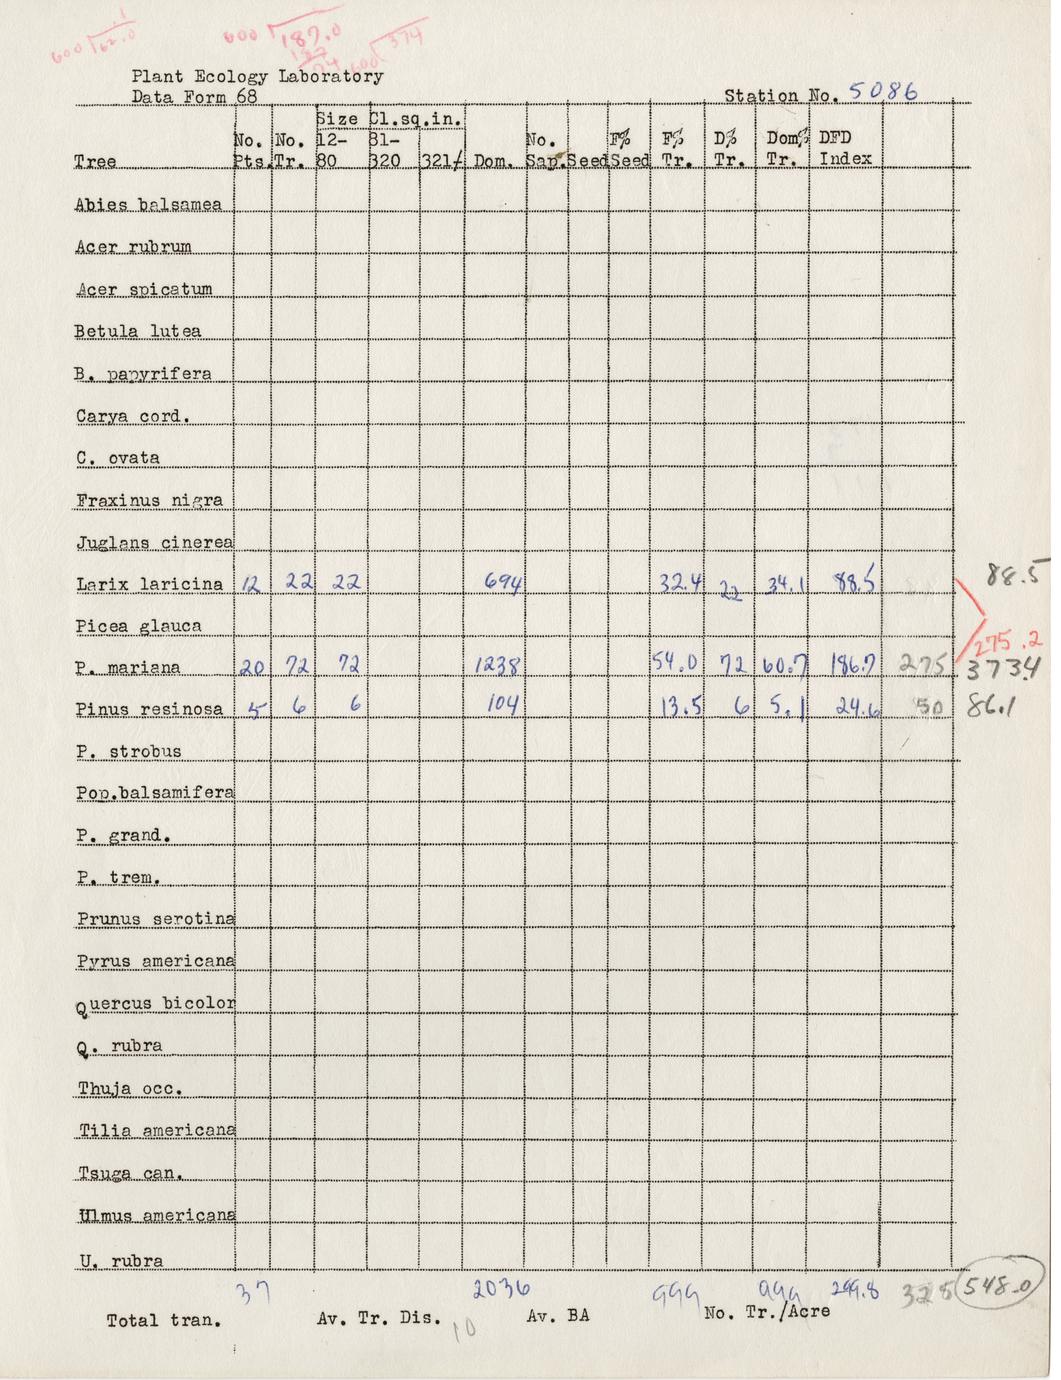 .1
600 62.0
600 187.0
187
600 374
Plant Ecology Laboratory
Data Form 68
Station No. 5086
Size Cl.sq.in.
No. No. 12- 81- No. F% F% D% Dom% DFD
Tree Pts. Tr. 80 320 321/ Dom. Sap. Seed Seed Tr. Tr. Tr. Index
Abies balsamea
Acer rubrum
Acer spicatum
Betula lutea
B. papyrifera
Carya cord.
C. ovata
Fraxinus nigra
Juglans cinerea
Larix laricina 12 22 22 694 32.4 22 34.1 88.5 88.5
Picea glauca
275.2
P. mariana 20 72 72 1238 54.0 72 60.7 186.7 275 373.4
Pinus resinosa 5 6 6 104 13.5 6 5.1 24.6 50 86.1
P. strobus
Pop.balsamifera
P. grand.
P. trem.
Prunus serotina
Pyrus americana
Quercus bicolor
Q. rubra
Thuja occ.
Tilia americana
Tsuga can.
Ulmus americana
U. rubra
37 2036 999 999 299.8 325 548.0
Total tran. Av. Tr. Dis. 10 Av. BA No. Tr./Acre